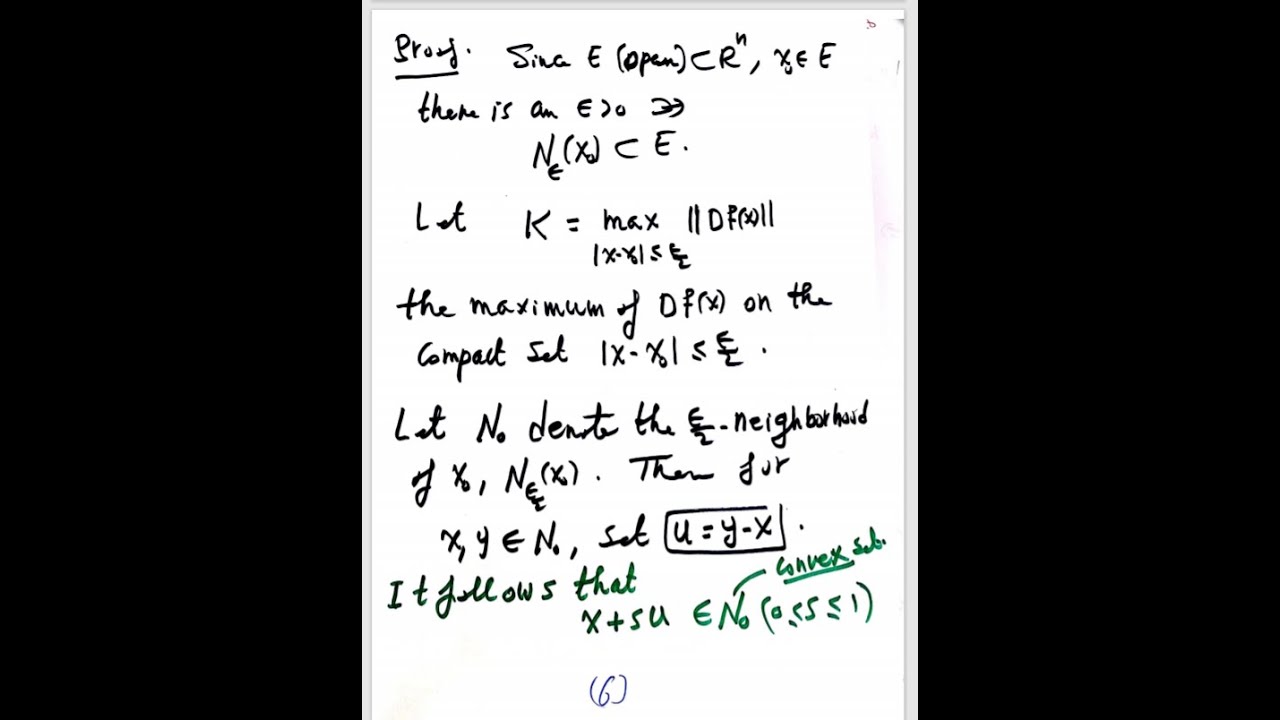 Proof. Since E (open) ⊂ Rⁿ, x₀ ∈ E
there is an ε>0 ∋
N_ε(x₀) ⊂ E.
Let K = max ||Df(x)||
|x-x₀| ≤ ε/2
the maximum of Df(x) on the
Compact set |x-x₀| ≤ ε/2.
Let N₀ denote the ε/2-neighborhood
of x₀, N_ε/2(x₀). Then for
x, y ∈ N₀, set u = y-x.
convex set.
It follows that
x+su ∈ N₀ (0≤s≤1)
(6)